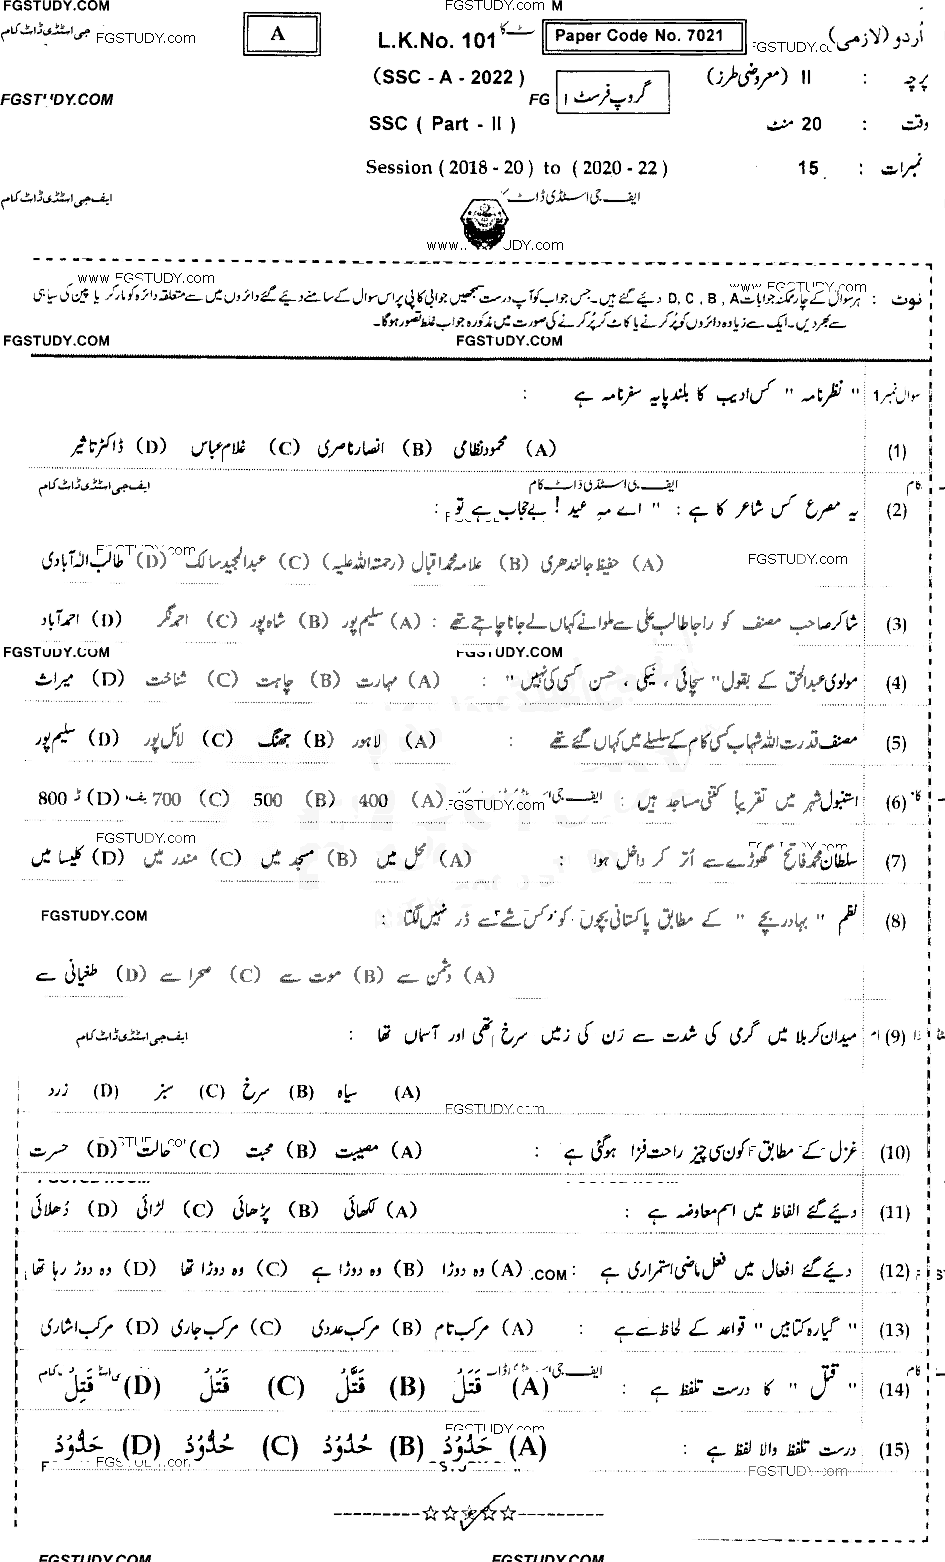 FGSTUDY.COM FGSTUDY.com M
اُردو (لازمی) FGSTUDY.c Paper Code No. 7021 L.K.No. 101 A FGSTUDY.com جی اسٹڈی ڈاٹ کام
پرچہ : II (معروضی طرز) (SSC - A - 2022)
گروپ فرسٹ I FG FGSTUDY.COM
وقت : 20 منٹ SSC ( Part - II )
نمبرات : 15 Session ( 2018 - 20 ) to ( 2020 - 22 )
ایف جی اسٹڈی ڈاٹ ایف جی اسٹڈی ڈاٹ کام
www. UDY.com
www.FGSTUDY.com www.FGSTUDY.com
نوٹ : ہر سوال کے چار ممکنہ جوابات D, C , B , A دیئے گئے ہیں۔ جس جواب کو آپ درست سمجھیں جوابی کاپی پر اس سوال کے سامنے دیئے گئے دائروں میں سے متعلقہ دائرہ کو مارکر یا پین کی سیاہی
سے بھر دیں۔ ایک سے زیادہ دائروں کو پُر کرنے یا کاٹ کر پُر کرنے کی صورت میں مذکورہ جواب غلط تصور ہو گا۔
FGSTUDY.COM FGSTUDY.COM
سوال نمبر 1 " نظرنامہ " کس ادیب کا بلند پایہ سفرنامہ ہے :
(1) (A) محمود نظامی (B) انصار ناصری (C) غلام عباس (D) ڈاکٹر تاثیر
کام ایف جی اسٹڈی ڈاٹ کام ایف جی اسٹڈی ڈاٹ کام
(2) یہ مصرع کس شاعر کا ہے : " اے مہِ عید ! بے حجاب ہے تو :
(A) حفیظ جالندھری (B) علامہ محمد اقبال (رحمتہ اللہ علیہ) (C) عبدالمجید سالک (D) طالب الہ آبادی
FGSTUDY.com FGSTUDY.com
(3) شاکر صاحب مصنف کو راجا طالب علی سے ملوانے کہاں لے جانا چاہتے تھے : (A) سلیم پور (B) شاہ پور (C) احمد نگر (D) احمد آباد
FGSTUDY.COM FGSTUDY.COM
(4) مولوی عبدالحق کے بقول " سچائی ، نیکی ، حسن کسی کی نہیں " : (A) مہارت (B) چاہت (C) شناخت (D) میراث
(5) مصنف قدرت اللہ شہاب کسی کام کے سلسلے میں کہاں گئے تھے : (A) لاہور (B) جھنگ (C) لائل پور (D) سلیم پور
(6) استنبول شہر میں تقریباً کتنی مساجد ہیں : (A) 400 (B) 500 (C) 700 (D) 800
FGSTUDY.com FGSTUDY.com
(7) سلطان محمد فاتح گھوڑے سے اُتر کر داخل ہوا : (A) محل میں (B) مسجد میں (C) مندر میں (D) کلیسا میں
(8) نظم " بہادر بچے " کے مطابق پاکستانی بچوں کو کس شے سے ڈر نہیں لگتا : FGSTUDY.COM
(A) دشمن سے (B) موت سے (C) صحرا سے (D) طغیانی سے
(9) میدان کربلا میں گرمی کی شدت سے رَن کی زمیں سرخ تھی اور آسماں تھا : ایف جی اسٹڈی ڈاٹ کام
(A) سیاہ (B) سرخ (C) سبز (D) زرد
FGSTUDY.com
(10) غزل کے مطابق کون سی چیز راحت فزا ہو گئی ہے : (A) مصیبت (B) محبت (C) حالت (D) حسرت
(11) دیئے گئے الفاظ میں اسم معاوضہ ہے : (A) لکھائی (B) پڑھائی (C) لڑائی (D) دُھلائی
(12) دیئے گئے افعال میں فعل ماضی استمراری ہے : .COM (A) وہ دوڑا (B) وہ دوڑا ہے (C) وہ دوڑا تھا (D) وہ دوڑ رہا تھا
(13) " گیارہ کتابیں " قواعد کے لحاظ سے ہے : (A) مرکب تام (B) مرکب عددی (C) مرکب جاری (D) مرکب اشاری
(14) " قتل " کا درست تلفظ ہے : (A) قَتَلُ (B) قَتَّلُ (C) قُتلُ (D) قَتِلُ
FGSTUDY.com
(15) درست تلفظ والا لفظ ہے : (A) حَدُوْدُ (B) حُدُوْدُ (C) حُدُّوْدُ (D) حَدُّوْدُ
FGSTUDY.com
FGSTUDY.COM FGSTUDY.COM